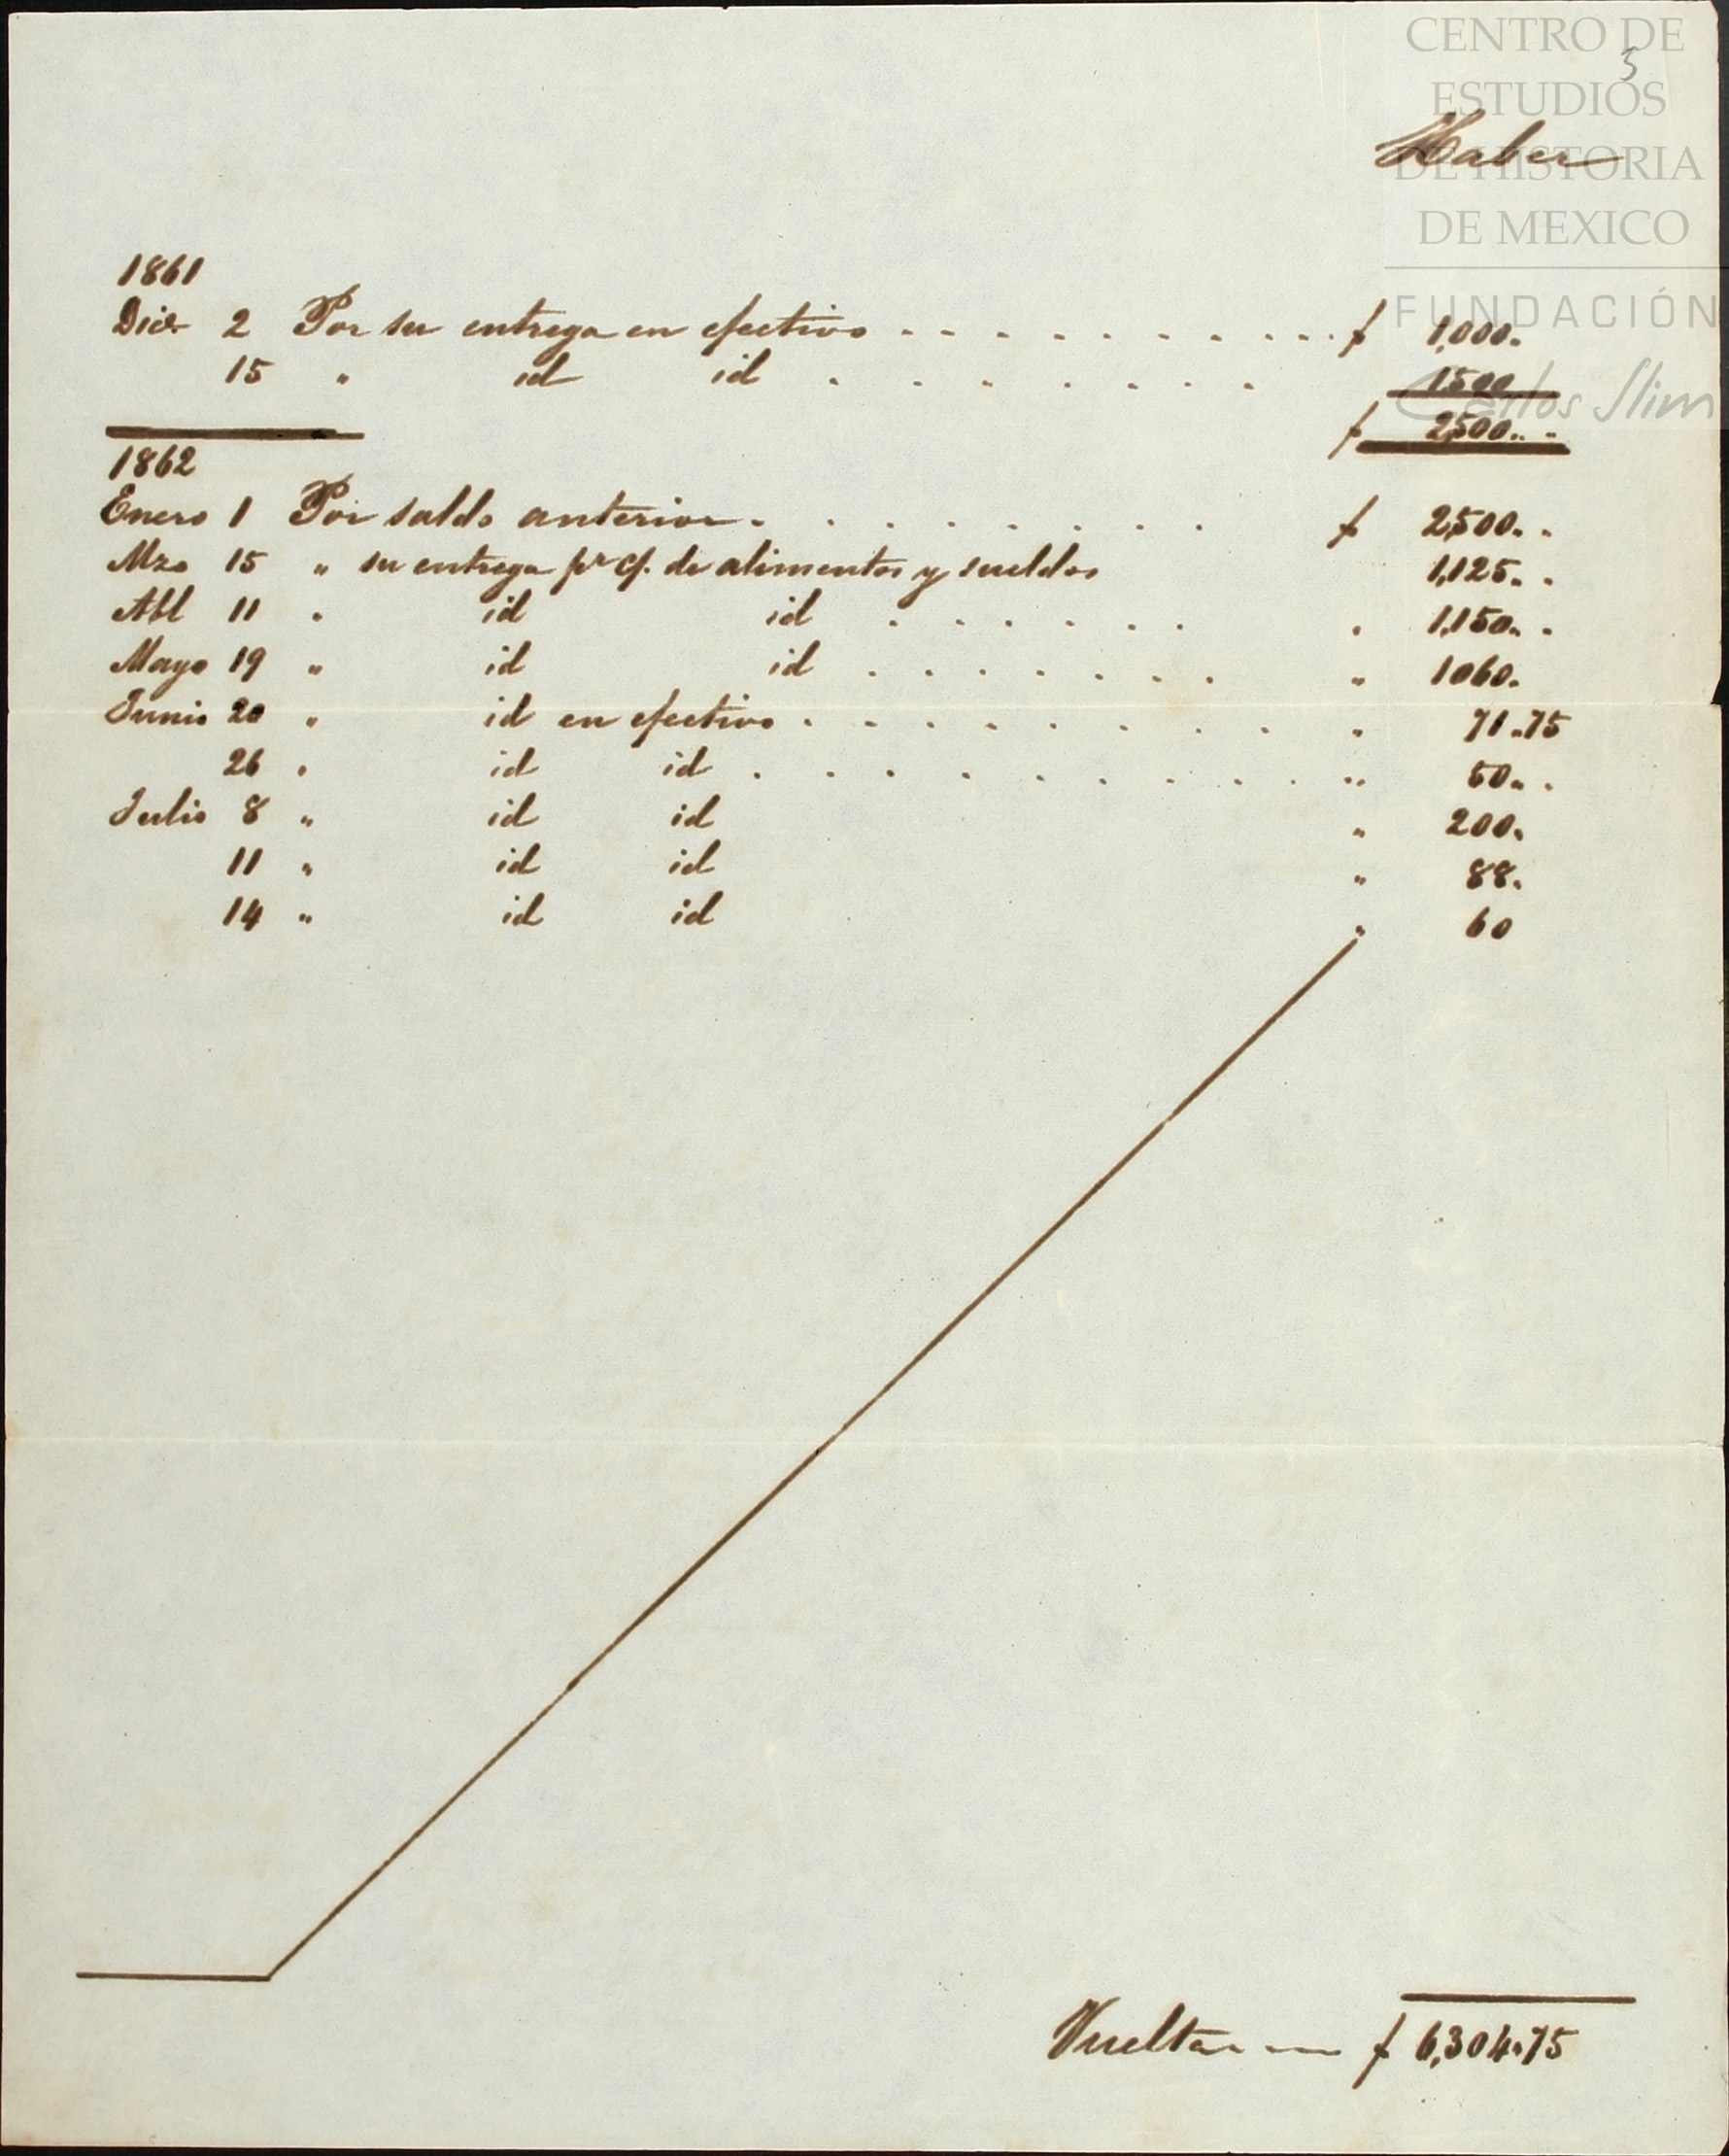 CENTRO DE
ESTUDIOS
DE HISTORIA
DE MEXICO
FUNDACIÓN
Carlos Slim
3
Haber
1861
Dice 2 Por su entrega en efectivo . . . . . . . . . . . $ 1,000.
15 " id id . . . . . . . 1500
$ 2,500..
1862
Enero 1 Por saldo anterior . . . . . . . $ 2,500..
Mzo 15 " su entrega pr cf. de alimentos y sueldos 1,125..
Abl 11 " id id . . . . . . " 1,150..
Mayo 19 " id id . . . . . . . " 1060.
Junio 20 " id en efectivo . . . . . . . . " 71.75
26 " id id . . . . . . . . " 50..
Julio 8 " id id " 200.
11 " id id " 88.
14 " id id " 60
Vuelta $ 6,304.75